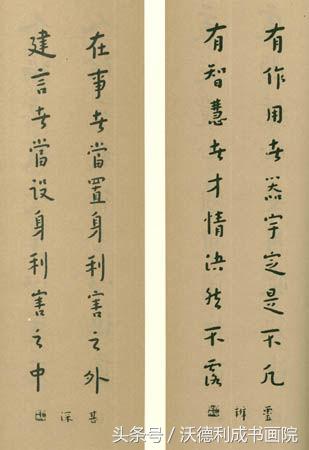 有作用者器宇定是不凡
有智慧者才情決然不露
靈辨
在事者當置身利害之外
建言者當設身利害之中
甚深
头条号 / 沃德利成书画院